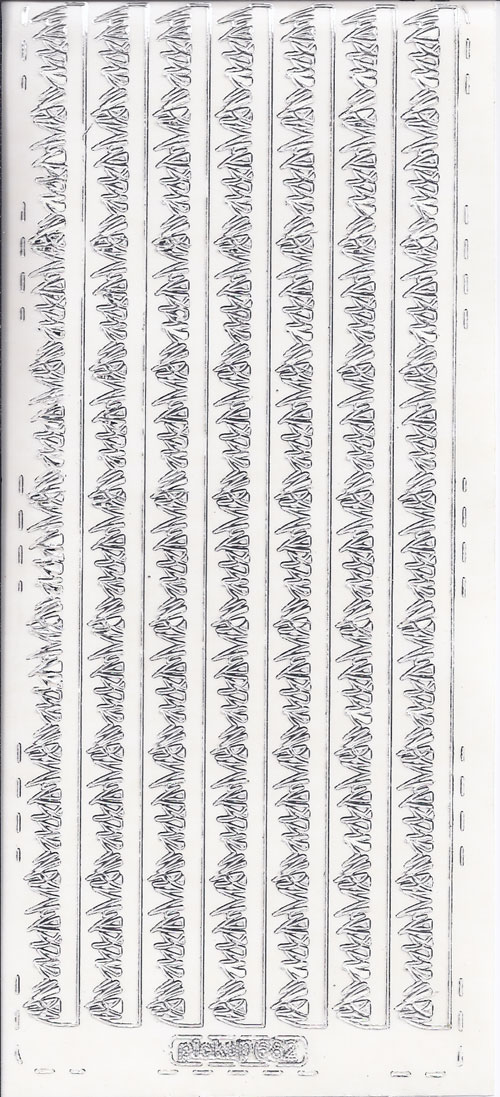 pickup 662